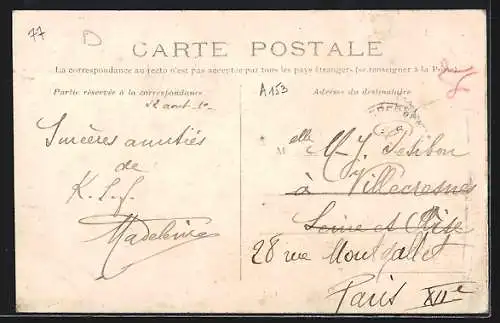 77
D
CARTE POSTALE
La correspondance au recto n'est pas acceptée par tous les pays étrangers (se renseigner à la Poste)
Partie réservée à la correspondance
Adresse du destinataire
A153
22 août 10
Sincères amitiés
de
Madeleine
M elle
à Villecresnes
Seine et Oise
28 rue Montgallet
Paris XIIe